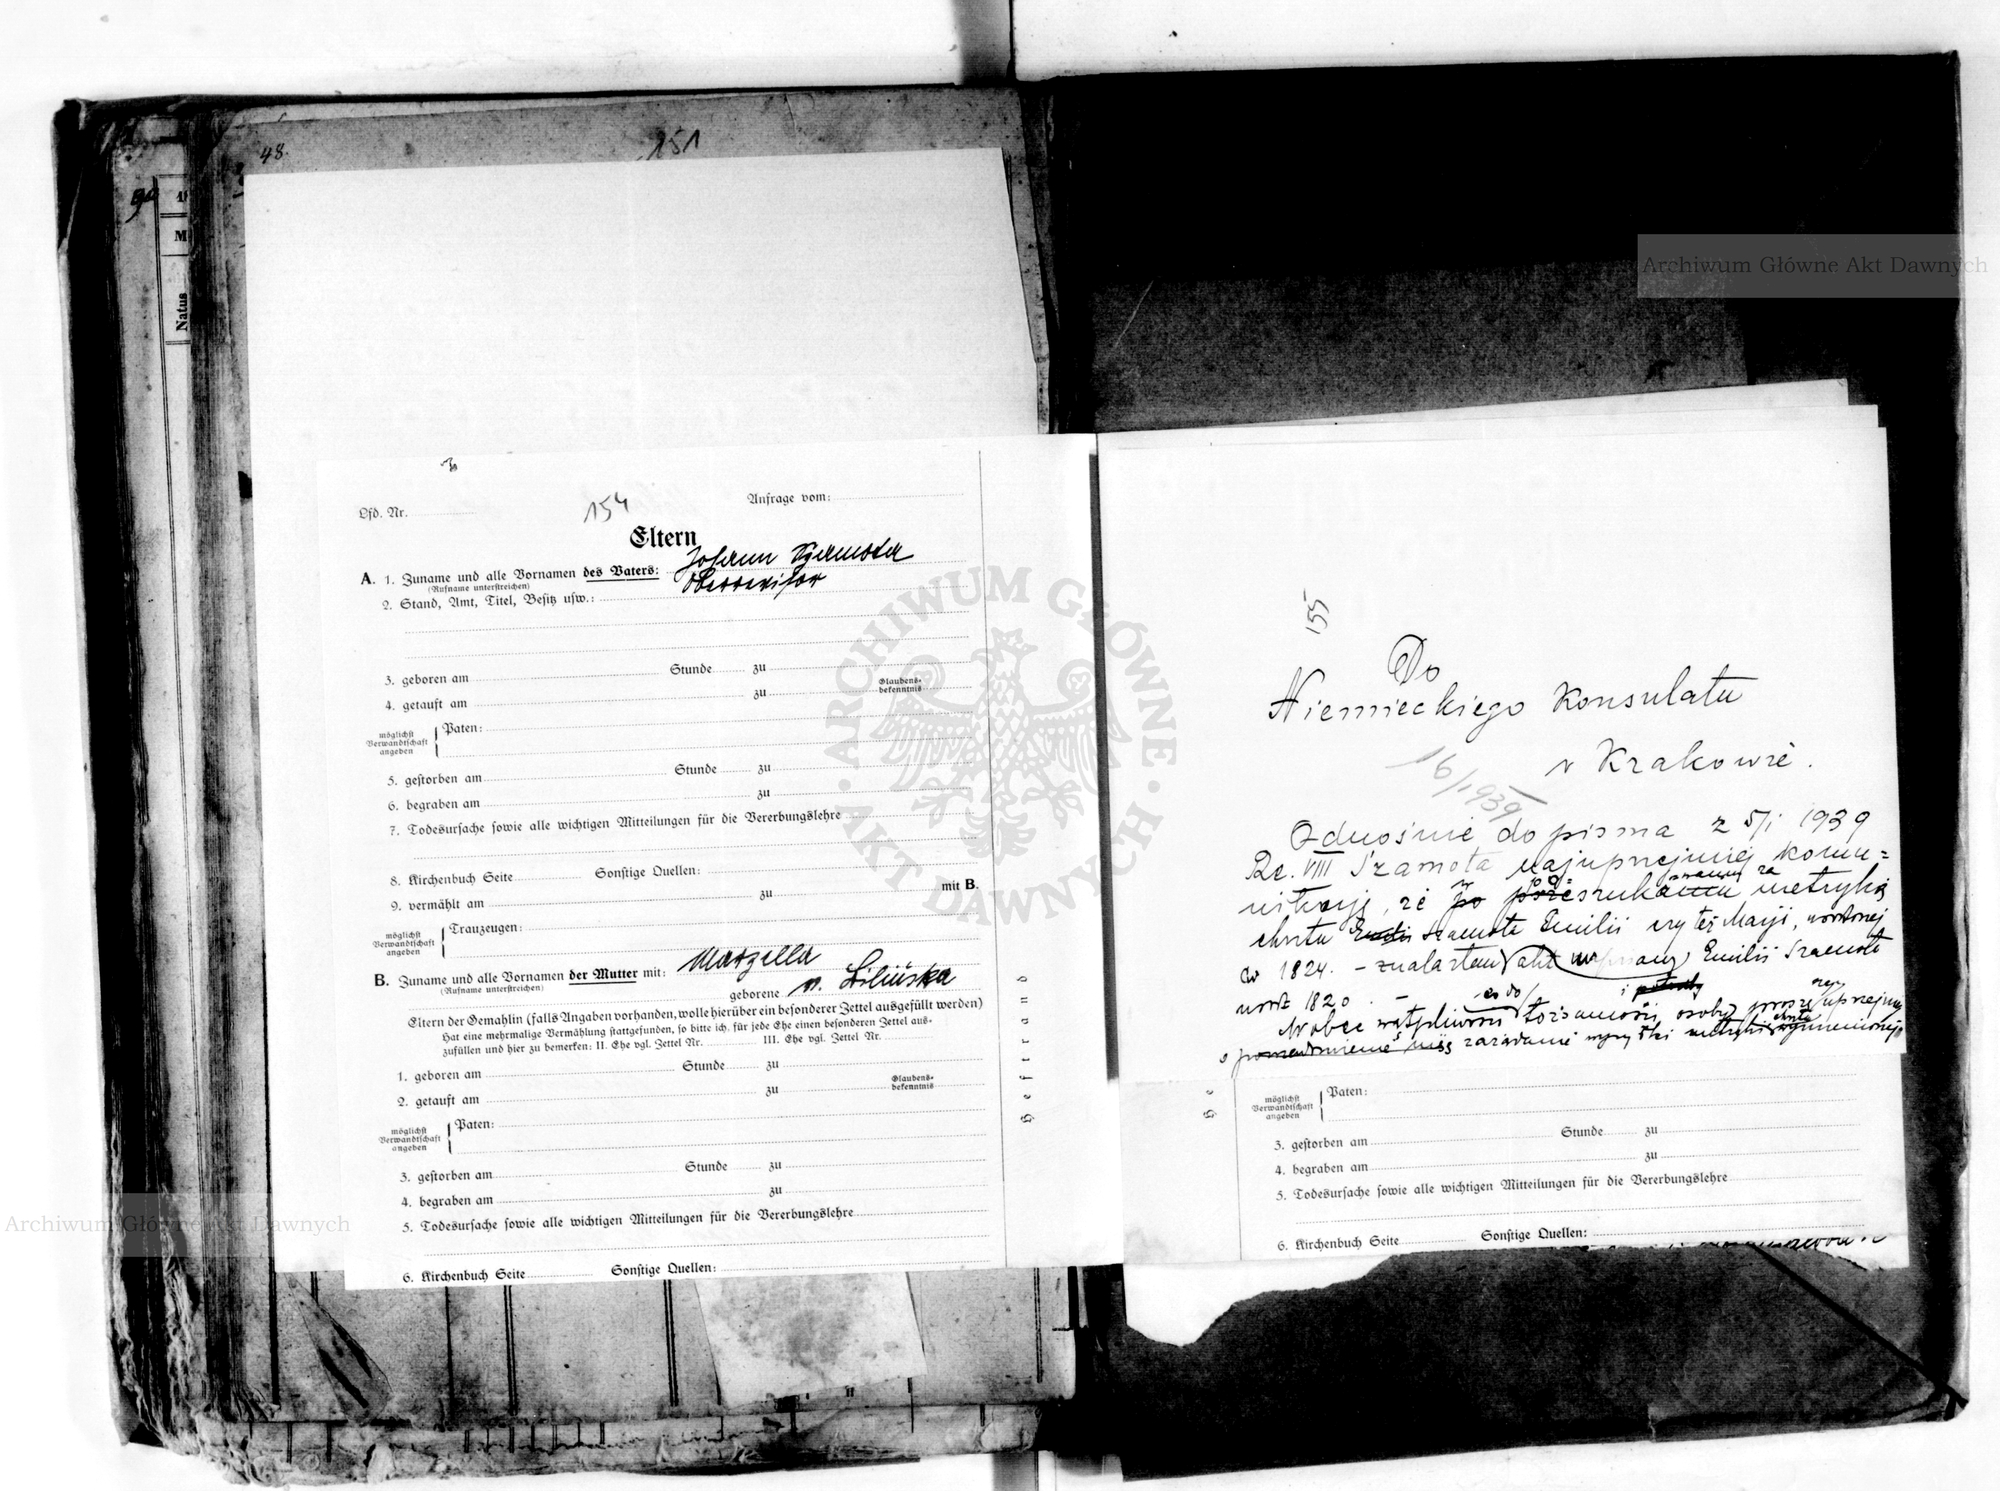 48.
151
90
M
Natus
3
154
Lfd. Nr.
Anfrage vom:
Eltern
A. 1. Zuname und alle Vornamen des Vaters: Johann Szamota
(Rufname unterstreichen)
2. Stand, Amt, Titel, Besitz usw.: Oberrevisor
3. geboren am Stunde zu
4. getauft am zu Glaubens-
bekenntnis
möglichst
Verwandtschaft
angeben
Paten:
5. gestorben am Stunde zu
6. begraben am zu
7. Todesursache sowie alle wichtigen Mitteilungen für die Vererbungslehre
8. Kirchenbuch Seite Sonstige Quellen:
9. vermählt am zu mit B.
möglichst
Verwandtschaft
angeben
Trauzeugen:
B. Zuname und alle Vornamen der Mutter mit: Marzella
(Rufname unterstreichen)
geborene v.
Eltern der Gemahlin (falls Angaben vorhanden, wolle hierüber ein besonderer Zettel ausgefüllt werden)
Hat eine mehrmalige Vermählung stattgefunden, so bitte ich, für jede Ehe einen besonderen Zettel aus-
zufüllen und hier zu bemerken: II. Ehe vgl. Zettel Nr. III. Ehe vgl. Zettel Nr.
1. geboren am Stunde zu
2. getauft am zu Glaubens-
bekenntnis
möglichst
Verwandtschaft
angeben
Paten:
3. gestorben am Stunde zu
4. begraben am zu
5. Todesursache sowie alle wichtigen Mitteilungen für die Vererbungslehre
6. Kirchenbuch Seite Sonstige Quellen:
Heftrand
155
Do
Niemieckiego Konsulatu
w Krakowie.
16/1939
Odnośnie do pisma z 5/I 1939
Rc. VIII Szamota najuprzejmiej komu=
nikuję, że po poszukiwaniu za metryką
chrztu Szamota Emilii czy też Marji, urodzonej
w 1824. – znalazłem akt Emilii Szamota
urodz 1820. –
Wobec wątpliwości co do tożsamości osoby proszę uprzejmie
o zażądanie metryki chrztu wymienionej
He
möglichst
Verwandtschaft
angeben
Paten:
3. gestorben am Stunde zu
4. begraben am zu
5. Todesursache sowie alle wichtigen Mitteilungen für die Vererbungslehre
6. Kirchenbuch Seite Sonstige Quellen:
Archiwum Główne Akt Dawnych
Archiwum Główne Akt Dawnych
ARCHIWUM GŁÓWNE · AKT DAWNYCH ·